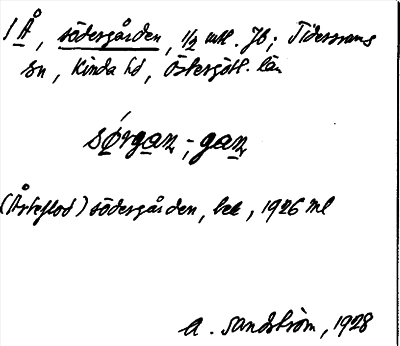 1 Å, södergården, 1/2 mtl. Jb; Tidersrums
sn, Kinda hd, Östergötl. län
sørgan, -; gan
(Åteflod) södergården, bec, 1926 ml
A. Sandström, 1928